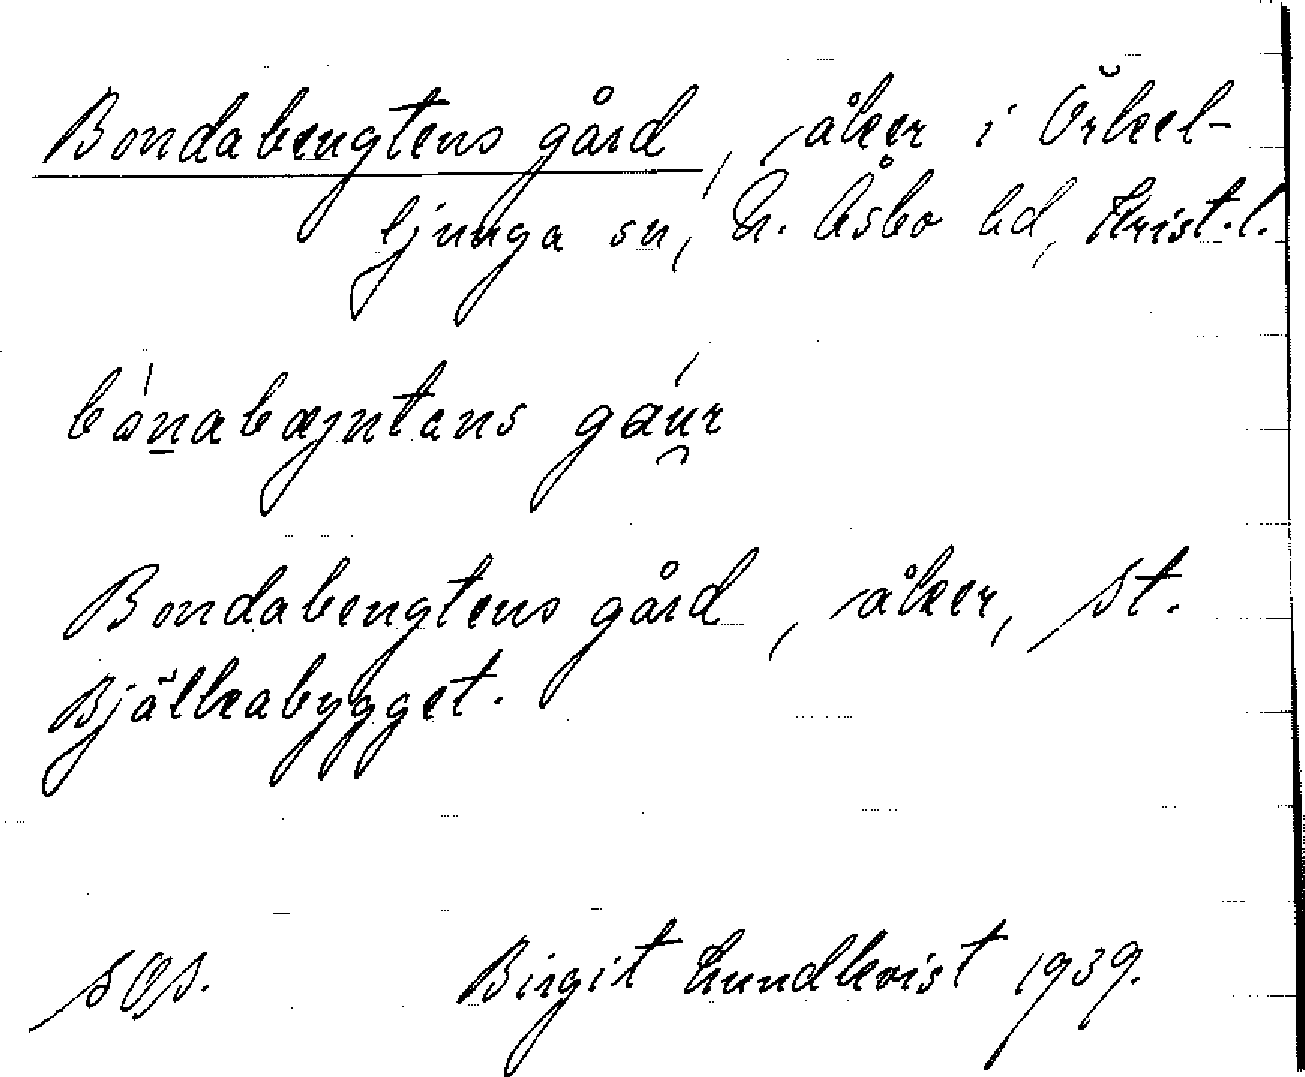 Bondabengtens gård, åker i Örkel-
ljunga sn, N. Åsbo hd, Krist.l.
bånabæjntans gáu̯r
Bondabengtens gård, åker, St.
Bjälkabygget.
SOS. Birgit Lundkvist 1939.